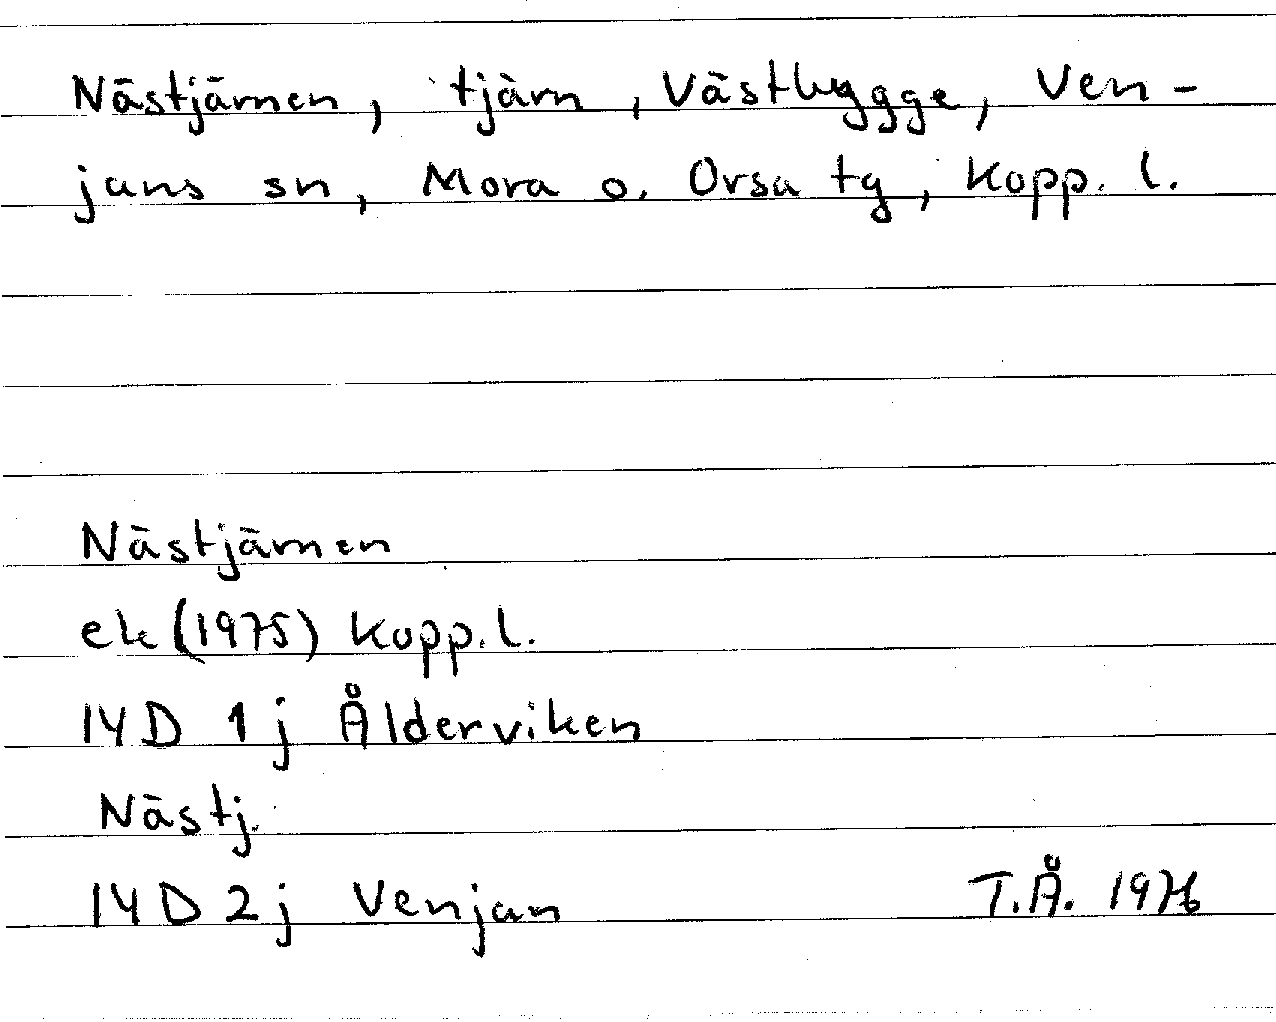 Nästjärnen, tjärn, Västbygge, Ven-
jans sn, Mora o. Orsa tg, Kopp. l.
Nästjärnen
ek (1975) Kopp. l.
14 D 1 j Ålderviken
Nästj.
14 D 2 j Venjan T.Å. 1976